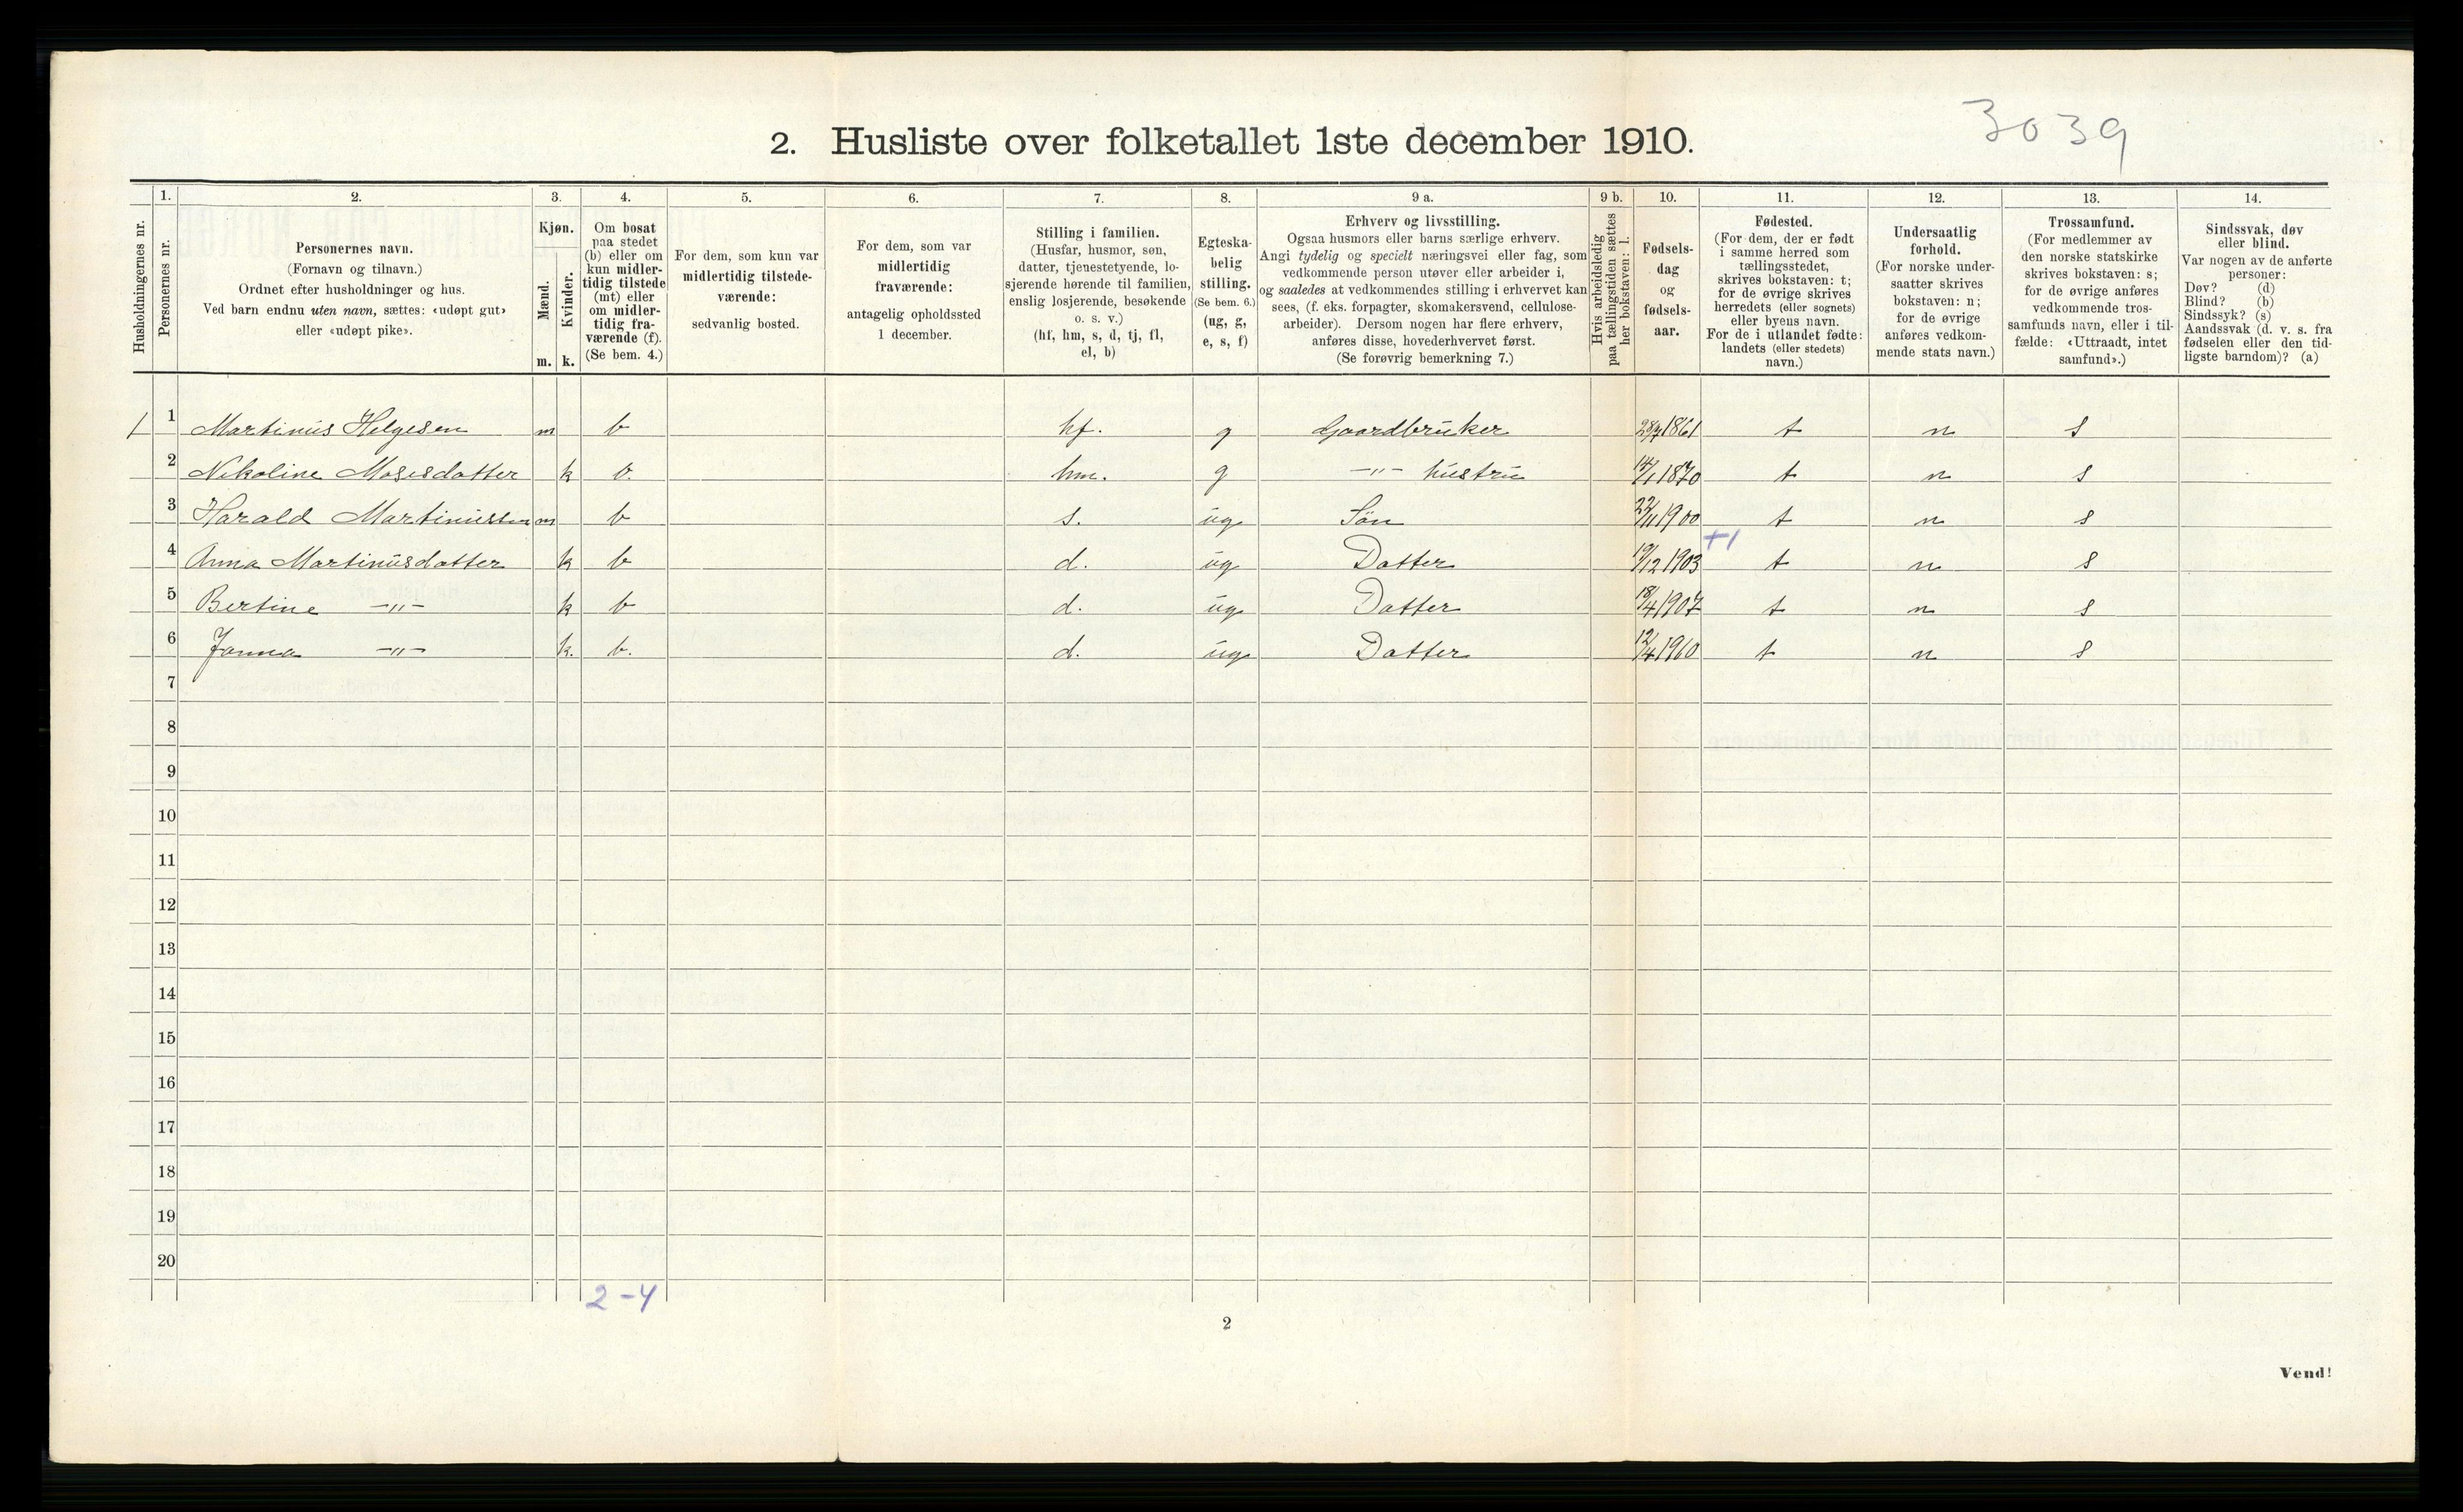 3039
2. Husliste over folketallet 1ste december 1910.
Husholdningernes nr.
1. Personernes nr.
2. Personernes navn. (Fornavn og tilnavn.) Ordnet efter husholdninger og hus. Ved barn endnu uten navn, sættes: «udøpt gut» eller «udøpt pike».
3. Kjøn. Mænd. m. Kvinder. k.
4. Om bosat paa stedet (b) eller om kun midlertidig tilstede (mt) eller om midlertidig fraværende (f). (Se bem. 4.)
5. For dem, som kun var midlertidig tilstedeværende: sedvanlig bosted.
6. For dem, som var midlertidig fraværende: antagelig opholdssted 1 december.
7. Stilling i familien. (Husfar, husmor, søn, datter, tjenestetyende, losjerende hørende til familien, enslig losjerende, besøkende o. s. v.) (hf, hm, s, d, tj, fl, el, b)
8. Egteskabelig stilling. (Se bem. 6.) (ug, g, e, s, f)
9 a. Erhverv og livsstilling. Ogsaa husmors eller barns særlige erhverv. Angi tydelig og specielt næringsvei eller fag, som vedkommende person utøver eller arbeider i, og saaledes at vedkommendes stilling i erhvervet kan sees, (f. eks. forpagter, skomakersvend, cellulosearbeider). Dersom nogen har flere erhverv, anføres disse, hovederhvervet først. (Se forøvrig bemerkning 7.)
9 b. Hvis arbeidsledig paa tællingstiden sættes her bokstaven: l.
10. Fødselsdag og fødselsaar.
11. Fødested. (For dem, der er født i samme herred som tællingsstedet, skrives bokstaven: t; for de øvrige skrives herredets (eller sognets) eller byens navn. For de i utlandet fødte: landets (eller stedets) navn.)
12. Undersaatlig forhold. (For norske undersaatter skrives bokstaven: n; for de øvrige anføres vedkommende stats navn.)
13. Trossamfund. (For medlemmer av den norske statskirke skrives bokstaven: s; for de øvrige anføres vedkommende trossamfunds navn, eller i tilfælde: «Uttraadt, intet samfund».)
14. Sindssvak, døv eller blind. Var nogen av de anførte personer: Døv? (d) Blind? (b) Sindssyk? (s) Aandssvak (d. v. s. fra fødselen eller den tidligste barndom)? (a)
1 1 Martinus Helgesen m b hf. g Gaardbruker 1861 t n s
2 Nikoline Mosesdatter k b. hm. g —"— hustru 14/1 1870 t n s
3 Harald Martinussen m b s. ug Søn 22/11 1900 t n s
+1
4 Anna Martinusdatter k b d. ug Datter 19/12 1903 t n s
5 Bertine —"— k b d. ug Datter 18/4 1907 t n s
6 Janna —"— k. b. d. ug Datter 12/4 1960 t n s
7
8
9
10
11
12
13
14
15
16
17
18
19
20
2-4
2
Vend!